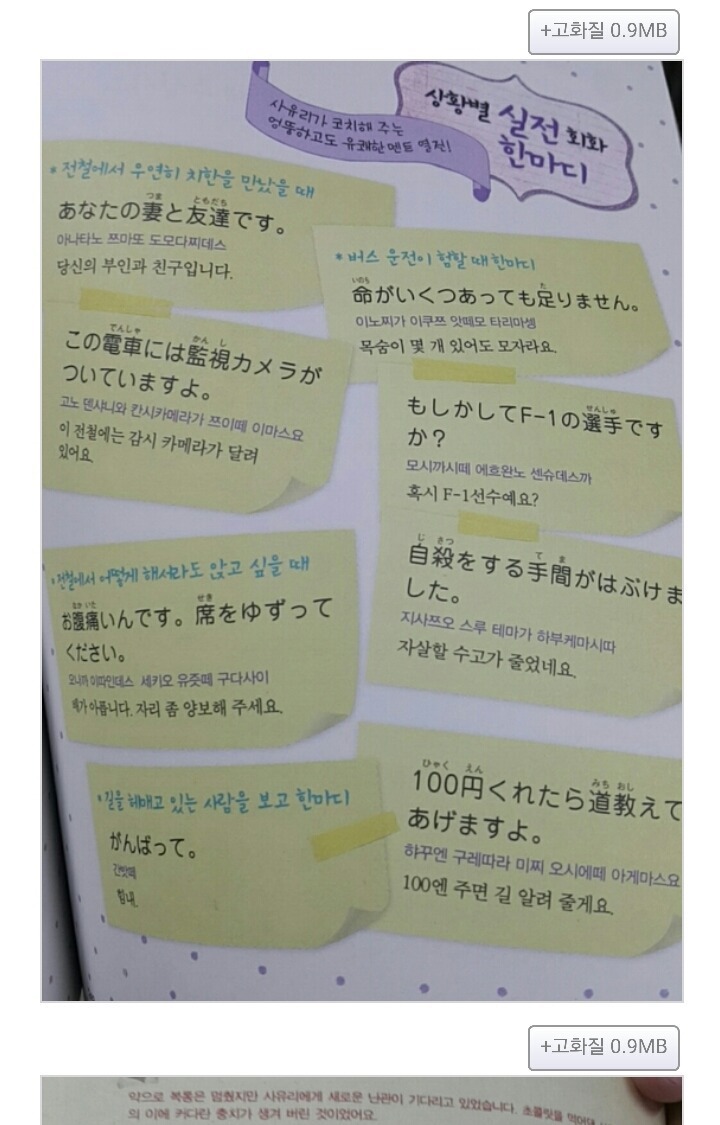 +고화질 0.9MB
상황별 실전 회화
한마디
사유리가 코치해 주는
엉뚱하고도 유쾌한 멘트 열전!
* 전철에서 우연히 치한을 만났을 때
つま ともだち
あなたの妻と友達です。
아나타노 쯔마또 도모다찌데스
당신의 부인과 친구입니다.
でんしゃ かんし
この電車には監視カメラが
ついていますよ。
고노 덴샤니와 칸시카메라가 쯔이떼 이마스요
이 전철에는 감시 카메라가 달려
있어요.
* 버스 운전이 험할 때 한마디
いのち た
命がいくつあっても足りません。
이노찌가 이쿠쯔 앗떼모 타리마셍
목숨이 몇 개 있어도 모자라요.
せんしゅ
もしかしてF-1の選手です
か？
모시까시떼 에흐완노 센슈데스까
혹시 F-1선수예요?
じ さつ て ま
自殺をする手間がはぶけま
した。
지사쯔오 스루 테마가 하부케마시따
자살할 수고가 줄었네요.
* 전철에서 어떻게 해서라도 앉고 싶을 때
なか いた せき
お腹痛いんです。席をゆずって
ください。
오나까 이따인데스 세키오 유즛떼 구다사이
배가 아픕니다. 자리 좀 양보해 주세요.
* 길을 헤매고 있는 사람을 보고 한마디
がんばって。
간밧떼
힘내.
ひゃく えん みち おし
100円くれたら道教えて
あげますよ。
햐꾸엔 구레따라 미찌 오시에떼 아게마스요
100엔 주면 길 알려 줄게요.
+고화질 0.9MB
약으로 복통은 멈췄지만 사유리에게 새로운 난관이 기다리고 있었습니다. 초콜릿을 먹어대
의 이에 커다란 충치가 생겨 버린 것이었어요.